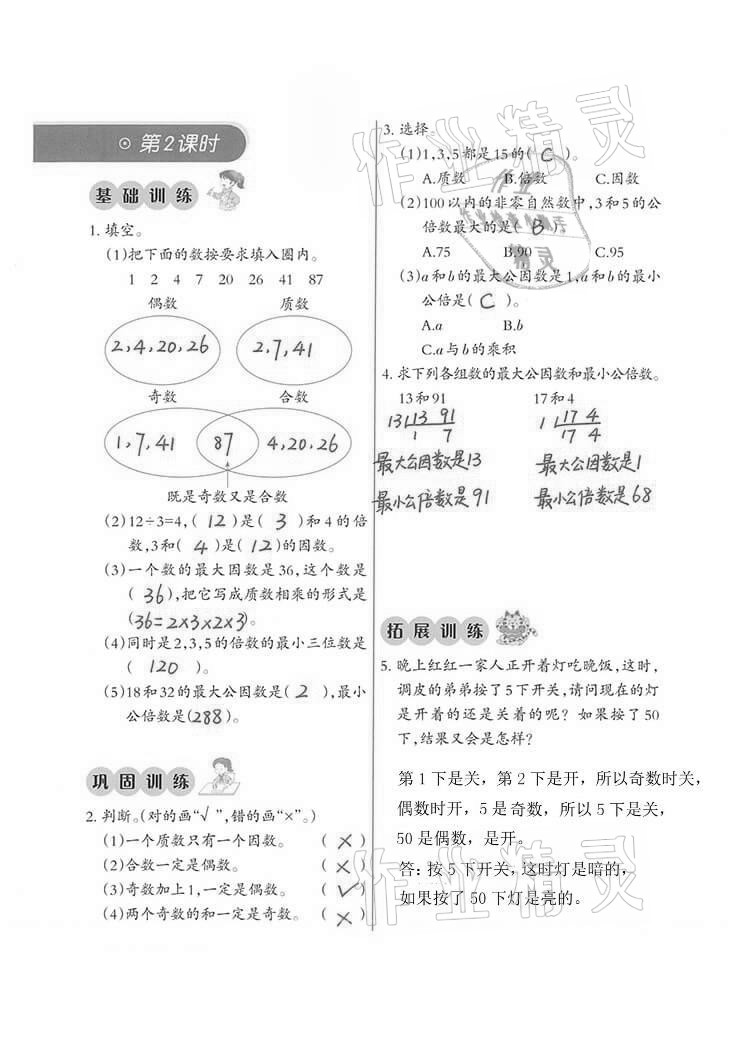 第2课时
基础训练
1. 填空。
(1)把下面的数按要求填入圈内。
1 2 4 7 20 26 41 87
偶数 质数
2,4,20,26 2,7,41
奇数 合数
1,7,41 87 4,20,26
既是奇数又是合数
(2)12÷3=4,( 12 )是( 3 )和4的倍
数,3和( 4 )是(12)的因数。
(3)一个数的最大因数是36,这个数是
( 36 ),把它写成质数相乘的形式是
(36=2×3×2×3)。
(4)同时是2,3,5的倍数的最小三位数是
( 120 )。
(5)18和32的最大公因数是( 2 ),最小
公倍数是(288)。
巩固训练
2. 判断。(对的画“√”,错的画“×”。)
(1)一个质数只有一个因数。 ( × )
(2)合数一定是偶数。 ( × )
(3)奇数加上1,一定是偶数。 ( √ )
(4)两个奇数的和一定是奇数。 ( × )
3. 选择。
(1)1,3,5都是15的( C )。
A.质数 B.倍数 C.因数
(2)100以内的非零自然数中,3和5的公
倍数最大的是( B )。
A.75 B.90 C.95
(3)a和b的最大公因数是1,a和b的最小
公倍是( C )。
A.a B.b
C.a与b的乘积
4. 求下列各组数的最大公因数和最小公倍数。
13和91 17和4
13 13 91 1 17 4
1 7 17 4
最大公因数是13 最大公因数是1
最小公倍数是91 最小公倍数是68
拓展训练
5. 晚上红红一家人正开着灯吃晚饭,这时,
调皮的弟弟按了5下开关,请问现在的灯
是开着的还是关着的呢？如果按了50
下,结果又会是怎样?
第1下是关，第2下是开，所以奇数时关，
偶数时开，5是奇数，所以5下是关，
50是偶数，是开。
答:按5下开关,这时灯是暗的，
如果按了50下灯是亮的。
作业精灵
作业精灵